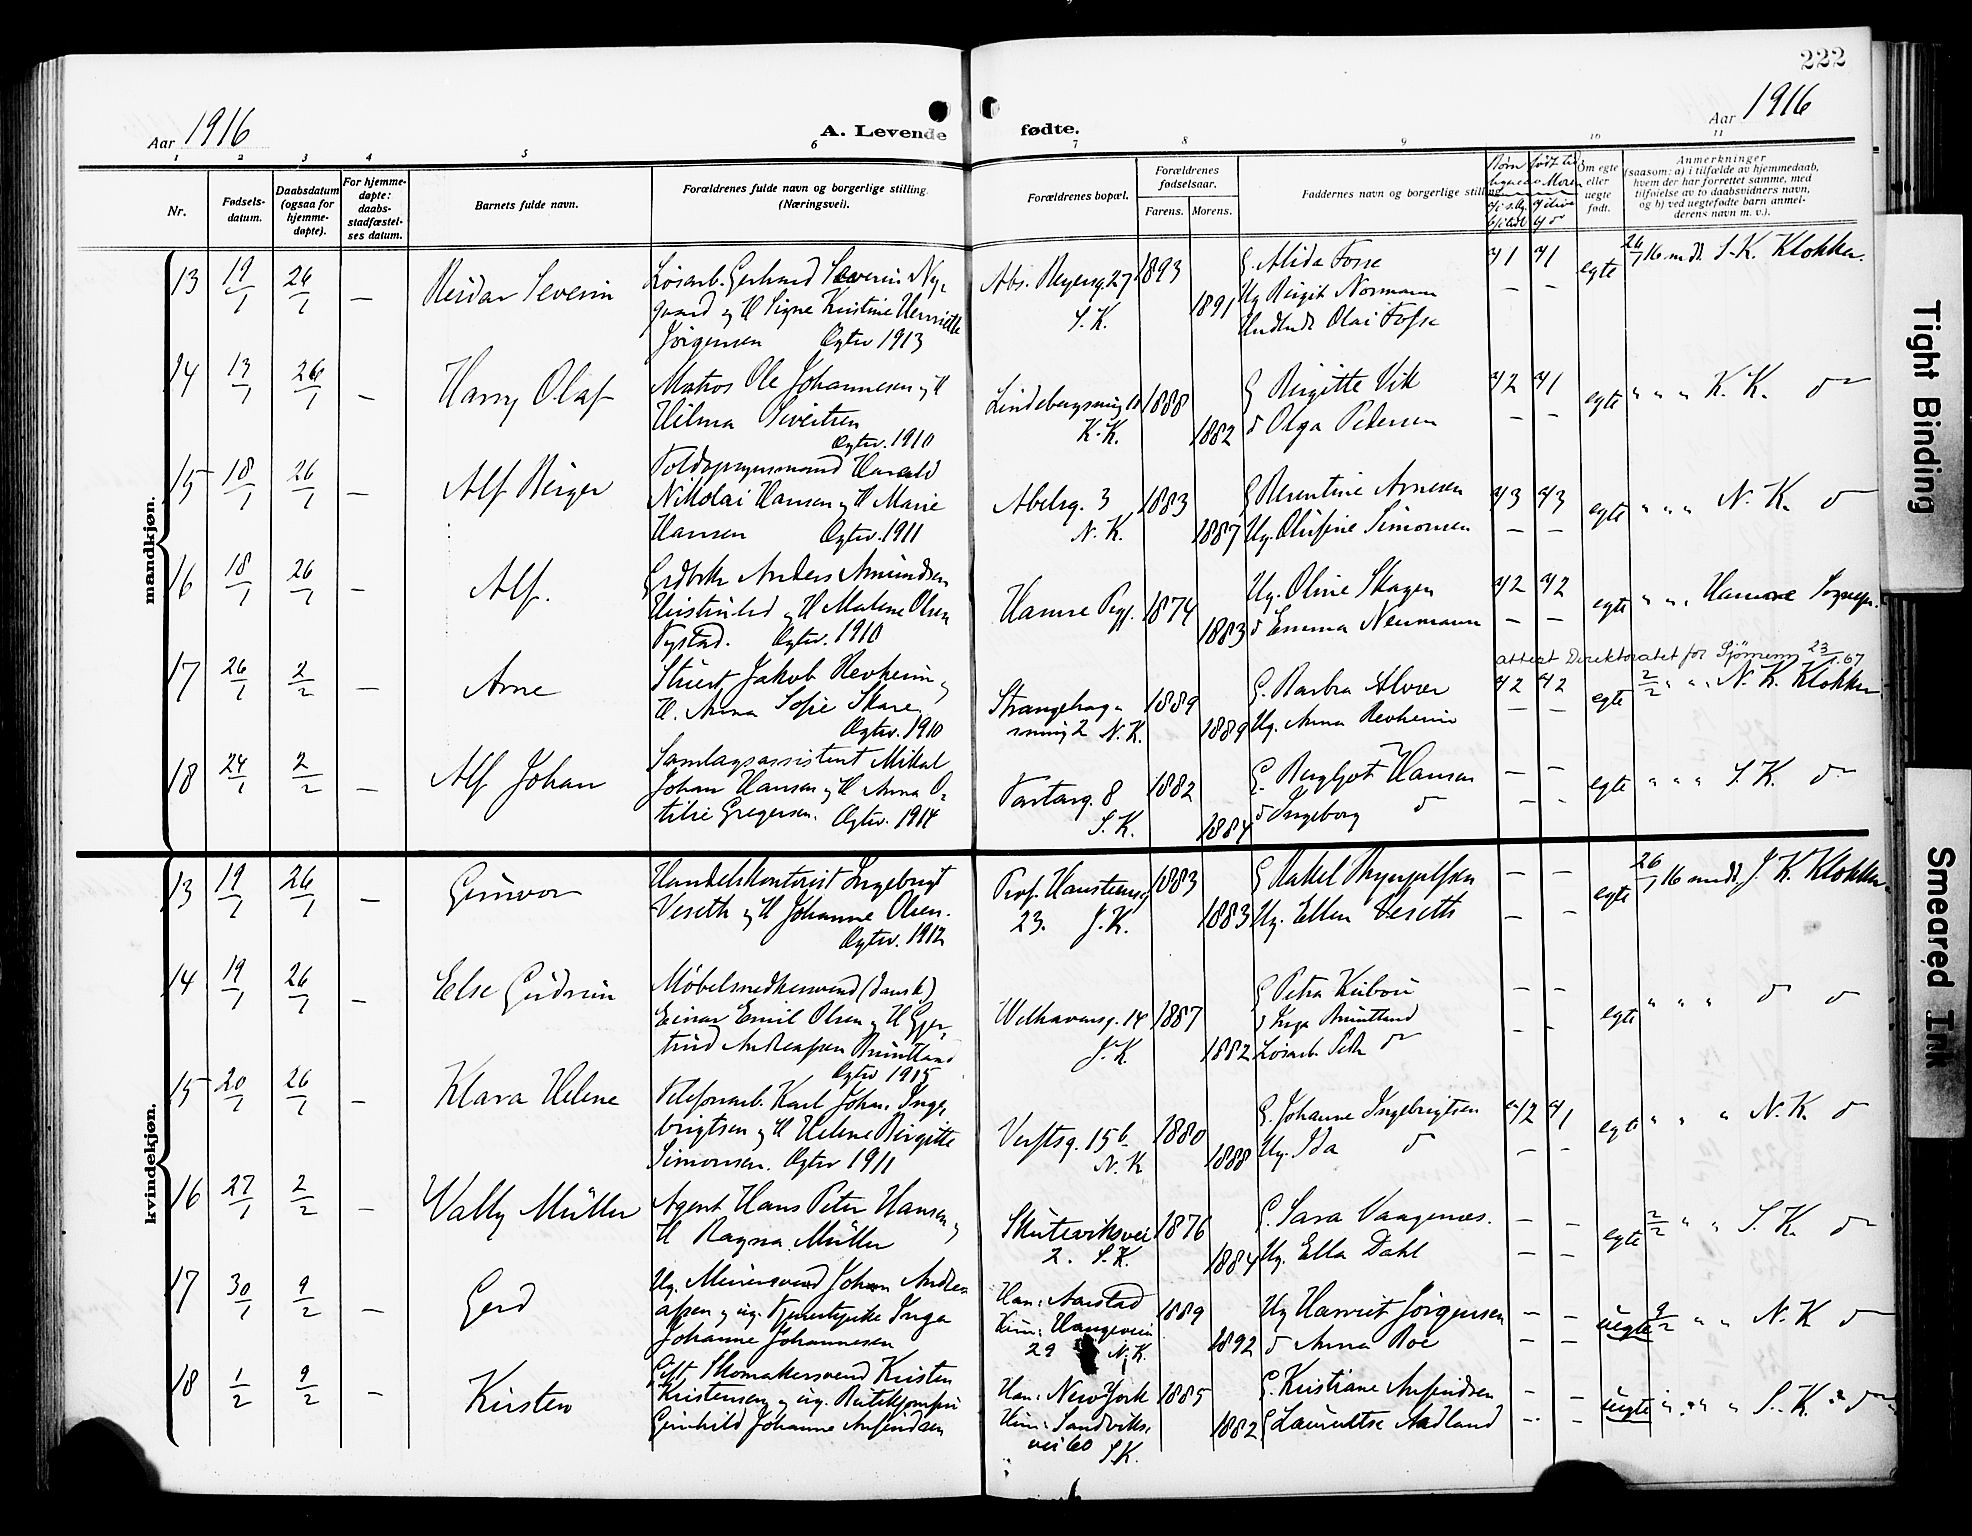 222
Aar 1916
A. Levende fødte.
Aar 1916
1 2 3 4 5 6 7 8 9 10 11
Nr.
Fødsels-
datum.
Daabsdatum
(ogsaa for
hjemme-
døpte).
For hjemme-
døpte:
daabs-
stadfæstel-
ses datum.
Barnets fulde navn.
Forældrenes fulde navn og borgerlige stilling.
(Næringsvei).
Forældrenes bopæl.
Forældrenes
fødselsaar.
Farens. Morens.
Faddernes navn og borgerlige stilling
Om egte
eller
uegte
født.
Anmerkninger
(saasom: a) i tilfælde av hjemmedaab,
hvem der har forrettet samme, med
tilføielse av to daabsvidners navn,
og b) ved uegtefødte barn anmel-
derens navn m. v.).
mandkjøn.
13 19/1 26/1 — Reidar Severin
Løsarb. Gerhard Severin Ny-
gaard og H Signe Kristine Henriette
Jørgensen Egtev 1913
Abs. Beyersg 27
S.K.
1893
1891
G. Alida Fosse
Ug Birgit Normann
Olai Fosse
egte
26/1 16 medt S.K. Klokker.
14 13/1 26/1 — Harry Olaf
Matros Ole Johannesen og H
Hilma Sivertsen
Egtev. 1910
Lindebergsmug 10
K.K.
1888
1882
G Birgitte Vik
d Olga Pedersen
egte
" " " K. K. do
15 18/1 26/1 — Alf Birger
Toldopsynsmand Harald
Nikolai Hansen og H Marie
Hansen Egtev. 1911
Abelsg. 3
N. K.
1883
1887
G Berentine Arnesen
Ug. Olufine Simonsen
egte
" " " N. K. do
16 18/1 26/1 — Alf.
Grdbr Anders Amundsen
og H Malene Olsen
Tystad. Egtev. 1910
Hamre Pgj.
1874
1883
Ug. Oline Skagen
d Emma Neumann
egte
" " " Hamre Sognepr.
attest Direktoratet for Sjømenn 23/1.67
17 26/1 2/2 — Arne
Stuert Jakob Revheim og
H. Anna Sofie Skare.
Egtev. 1910
Strangehag-
smug 2 N.K.
1889
1889
G. Barbra Alver
Ug. Anna Revheim
egte
2/2 " " N. K. Klokker
18 24/1 2/2 — Alf Johan
Samlagsassistent Mikal
Johan Hansen og H Anna O-
tilie Gregersen. Egtev. 1914
Tartarg. 8
S.K.
1882
1884
G. Bergljot Hansen
d Ingeborg do
egte
" " " S.K. do
kvindekjøn.
13 19/1 26/1 — Gunvor
Handelskontorist Ingebrigt
Veseth og H Johanne Olsen.
Egtev. 1912
Prof. Hansteensg
23. J.K.
1883
1883
G Rakel Brynjulfsen
Ug. Ellen Veseth
egte
26/1 16 medt J. K. Klokker.
14 19/1 26/1 — Else Gudrun
Møbelsnedkersvend (dansk)
Einar Emil Olsen og H Gjer-
trud Andreassen Bruntland
Egtev 1915
Welhavensg. 14
J.K.
1887
1882
G Petra Kirboe
d Inga Bruntland
Løsarb. Peder do
egte
" " " do do
15 20/1 26/1 — Klara Helene
Telefonarb. Karl Johan Inge-
brigtsen og H Helene Birgitte
Simonsen. Egtev 1911
Verftsg. 15b
N.K
1880
1888
G. Johanne Ingebrigtsen
Ug. Ida do
egte
" " " N.K. do
16 27/1 2/2 — Wally Müller
Agent Hans Peter Hansen og
H Ragna Müller
Skuteviksvei
2. S.K.
1876
1884
G. Sara Vaagenæs.
Ug. Ella Dahl
egte
2/2 " " S.K. do
17 30/1 9/2 — Gerd
Ug. Murersvend Johan Andrea
assen og ug. Tjenestepike Inga
Johanne Johannesen
Han: Aarstad
Hun: Haugeveien
29 N.K.
1889
1892
Ug Harriet Jørgensen
d Anna Roe
uegte
9/2 " " N.K do
18 1/2 9/2 — Kirsten
Gift Skomakersvend Kristen
Kristensen og ug. Butikjomfru
Gunhild Johanne Anfindsen
Han: New York
Hun: Sandviks-
vei 60 S.K.
1885
1882
G. Kristiane Anfindsen
G Lauritse Aadland
uegte
" " " S.K. do
Tight Binding
Smeared Ink